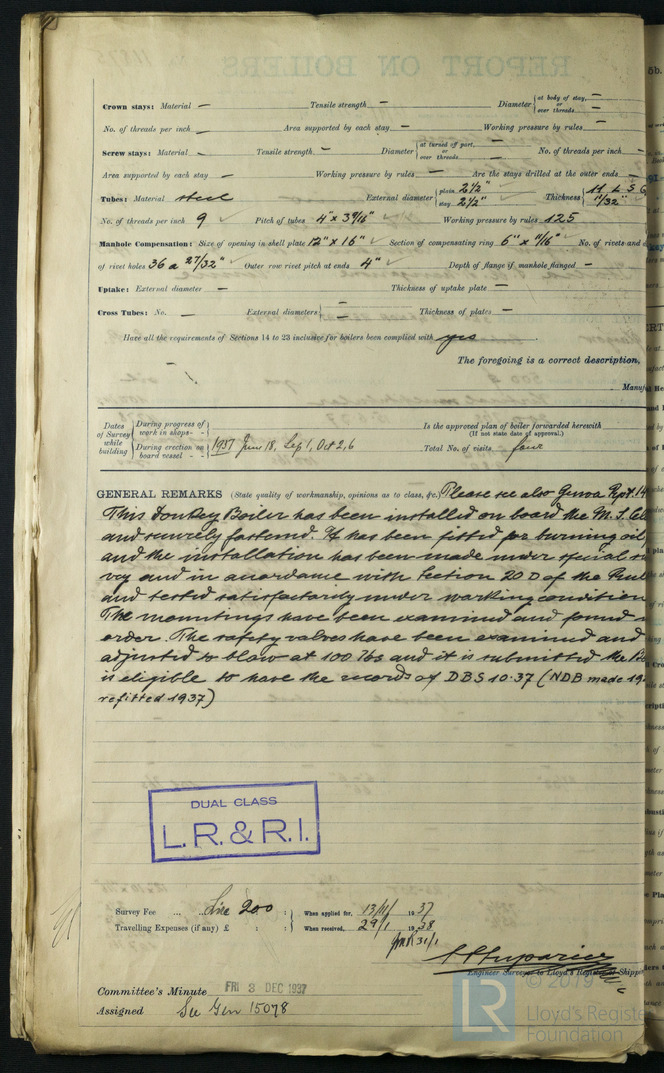 Crown stays: Material — Tensile strength — Diameter at body of stay, — or over threads —
No. of threads per inch — Area supported by each stay — Working pressure by rules —
Screw stays: Material — Tensile strength — Diameter at turned off part, — or over threads — No. of threads per inch —
Area supported by each stay — Working pressure by rules — Are the stays drilled at the outer ends —
Tubes: Material steel External diameter plain 2½" stay 2½" Thickness 11 L S G 11/32"
No. of threads per inch 9 Pitch of tubes 4" x 3 9/16" Working pressure by rules 125
Manhole Compensation: Size of opening in shell plate 12" x 16" Section of compensating ring 6" x 11/16" No. of rivets and
of rivet holes 36 a 27/32" Outer row rivet pitch at ends 4" Depth of flange if manhole flanged —
Uptake: External diameter — Thickness of uptake plate —
Cross Tubes: No. — External diameters — Thickness of plates —
Have all the requirements of Sections 14 to 23 inclusive for boilers been complied with yes
The foregoing is a correct description,
Manuf
Dates of Survey while building
During progress of work in shops - -
During erection on board vessel - - 1937 June 18, Sep 1, Oct 2, 6
Is the approved plan of boiler forwarded herewith
(If not state date of approval.)
Total No. of visits four
GENERAL REMARKS (State quality of workmanship, opinions as to class, &c. Please see also Genoa Rept. 14
This Donkey Boiler has been installed on board the M. S.
and securely fastened. It has been fitted for burning oil
and the installation has been made under special
vey and in accordance with Section 20 D of the Rul
and tested satisfactorily under working condition
The mountings have been examined and found
order. The safety valves have been examined and
adjusted to blow at 100 lbs and it is submitted the
is eligible to have the records of DBS 10.37 (NDB made 19
refitted 1937)
DUAL CLASS
L.R. & R.I.
Survey Fee ... ... Lire 200 : : When applied for, 13/11/ 1937
Travelling Expenses (if any) £ : : When received, 29/1 1938
31/1
Engineer Surveyor to Lloyd's Register of Shipping
Committee's Minute FRI 3 DEC 1937
Assigned See Gen 15078
© 2019
LR Lloyd's Register
Foundation